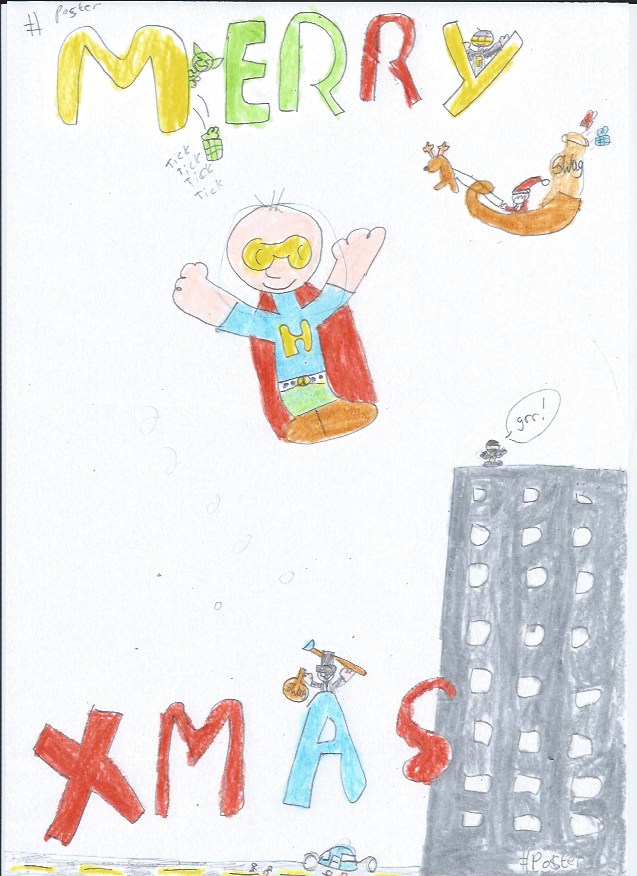 # Poster
MERRY
Tick
Tick
Tick
Tick
SWAG
H
grr!
SWAG
XMAS
#Poster